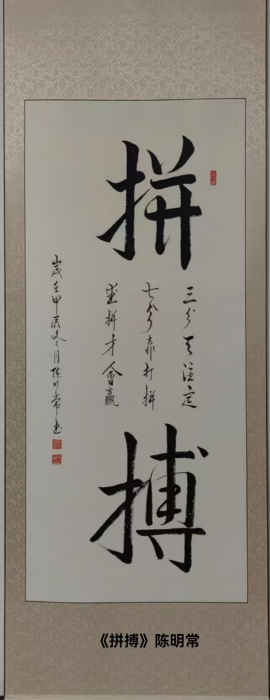 拼搏
三分天注定
七分靠打拼
爱拼才會赢
歲在甲辰冬月陈明常书
《拼搏》陈明常